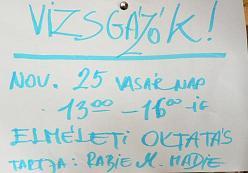 VIZSGÁZÓK!
NOV. 25 VASÁRNAP
13⁰⁰ - 16⁰⁰-IG
ELMÉLETI OKTATÁS
TARTJA: RABIE M. HADIE